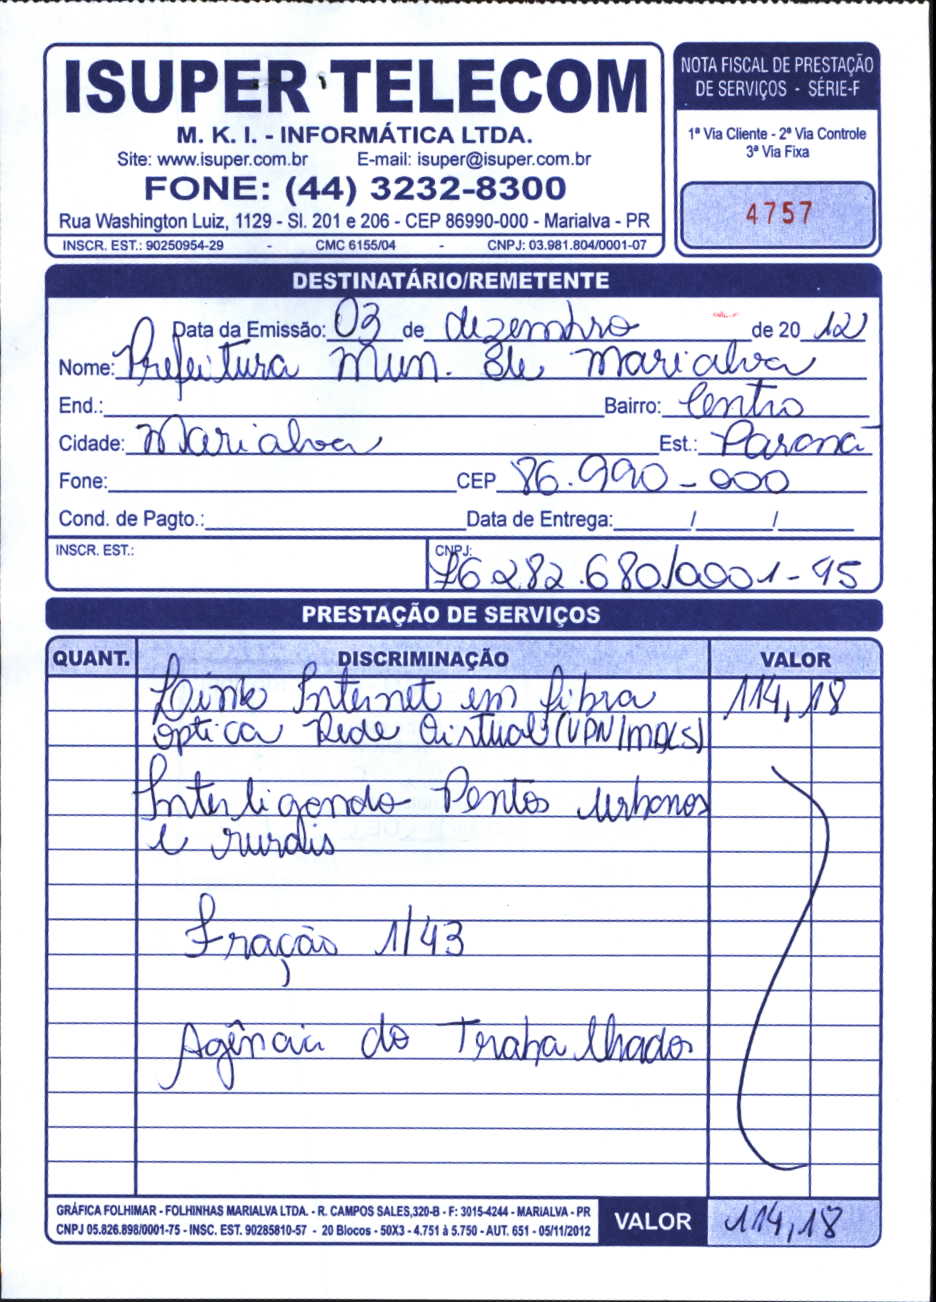 ISUPER TELECOM
M. K. I. - INFORMÁTICA LTDA.
Site: www.isuper.com.br E-mail: isuper@isuper.com.br
FONE: (44) 3232-8300
Rua Washington Luiz, 1129 - Sl. 201 e 206 - CEP 86990-000 - Marialva - PR
INSCR. EST.: 90250954-29 - CMC 6155/04 - CNPJ: 03.981.804/0001-07
NOTA FISCAL DE PRESTAÇÃO
DE SERVIÇOS - SÉRIE-F
1ª Via Cliente - 2ª Via Controle
3ª Via Fixa
4757
DESTINATÁRIO/REMETENTE
Data da Emissão: 03 de dezembro de 20 12
Nome: Prefeitura Mun. de Marialva
End.: Bairro: Centro
Cidade: Marialva Est.: Paraná
Fone: CEP 86.990-000
Cond. de Pagto.: Data de Entrega: / /
INSCR. EST.: CNPJ: 76282.680/0001-45
PRESTAÇÃO DE SERVIÇOS
QUANT. DISCRIMINAÇÃO VALOR
Link Internet em fibra 114,18
óptica Rede Virtual (VPN/MPLS)
Interligando Pontos urbanos
e rurais
Fração 1/43
Agência do Trabalhador
GRÁFICA FOLHIMAR - FOLHINHAS MARIALVA LTDA. - R. CAMPOS SALES,320-B - F: 3015-4244 - MARIALVA - PR
CNPJ 05.826.898/0001-75 - INSC. EST. 90285810-57 - 20 Blocos - 50X3 - 4.751 à 5.750 - AUT. 651 - 05/11/2012
VALOR 114,18